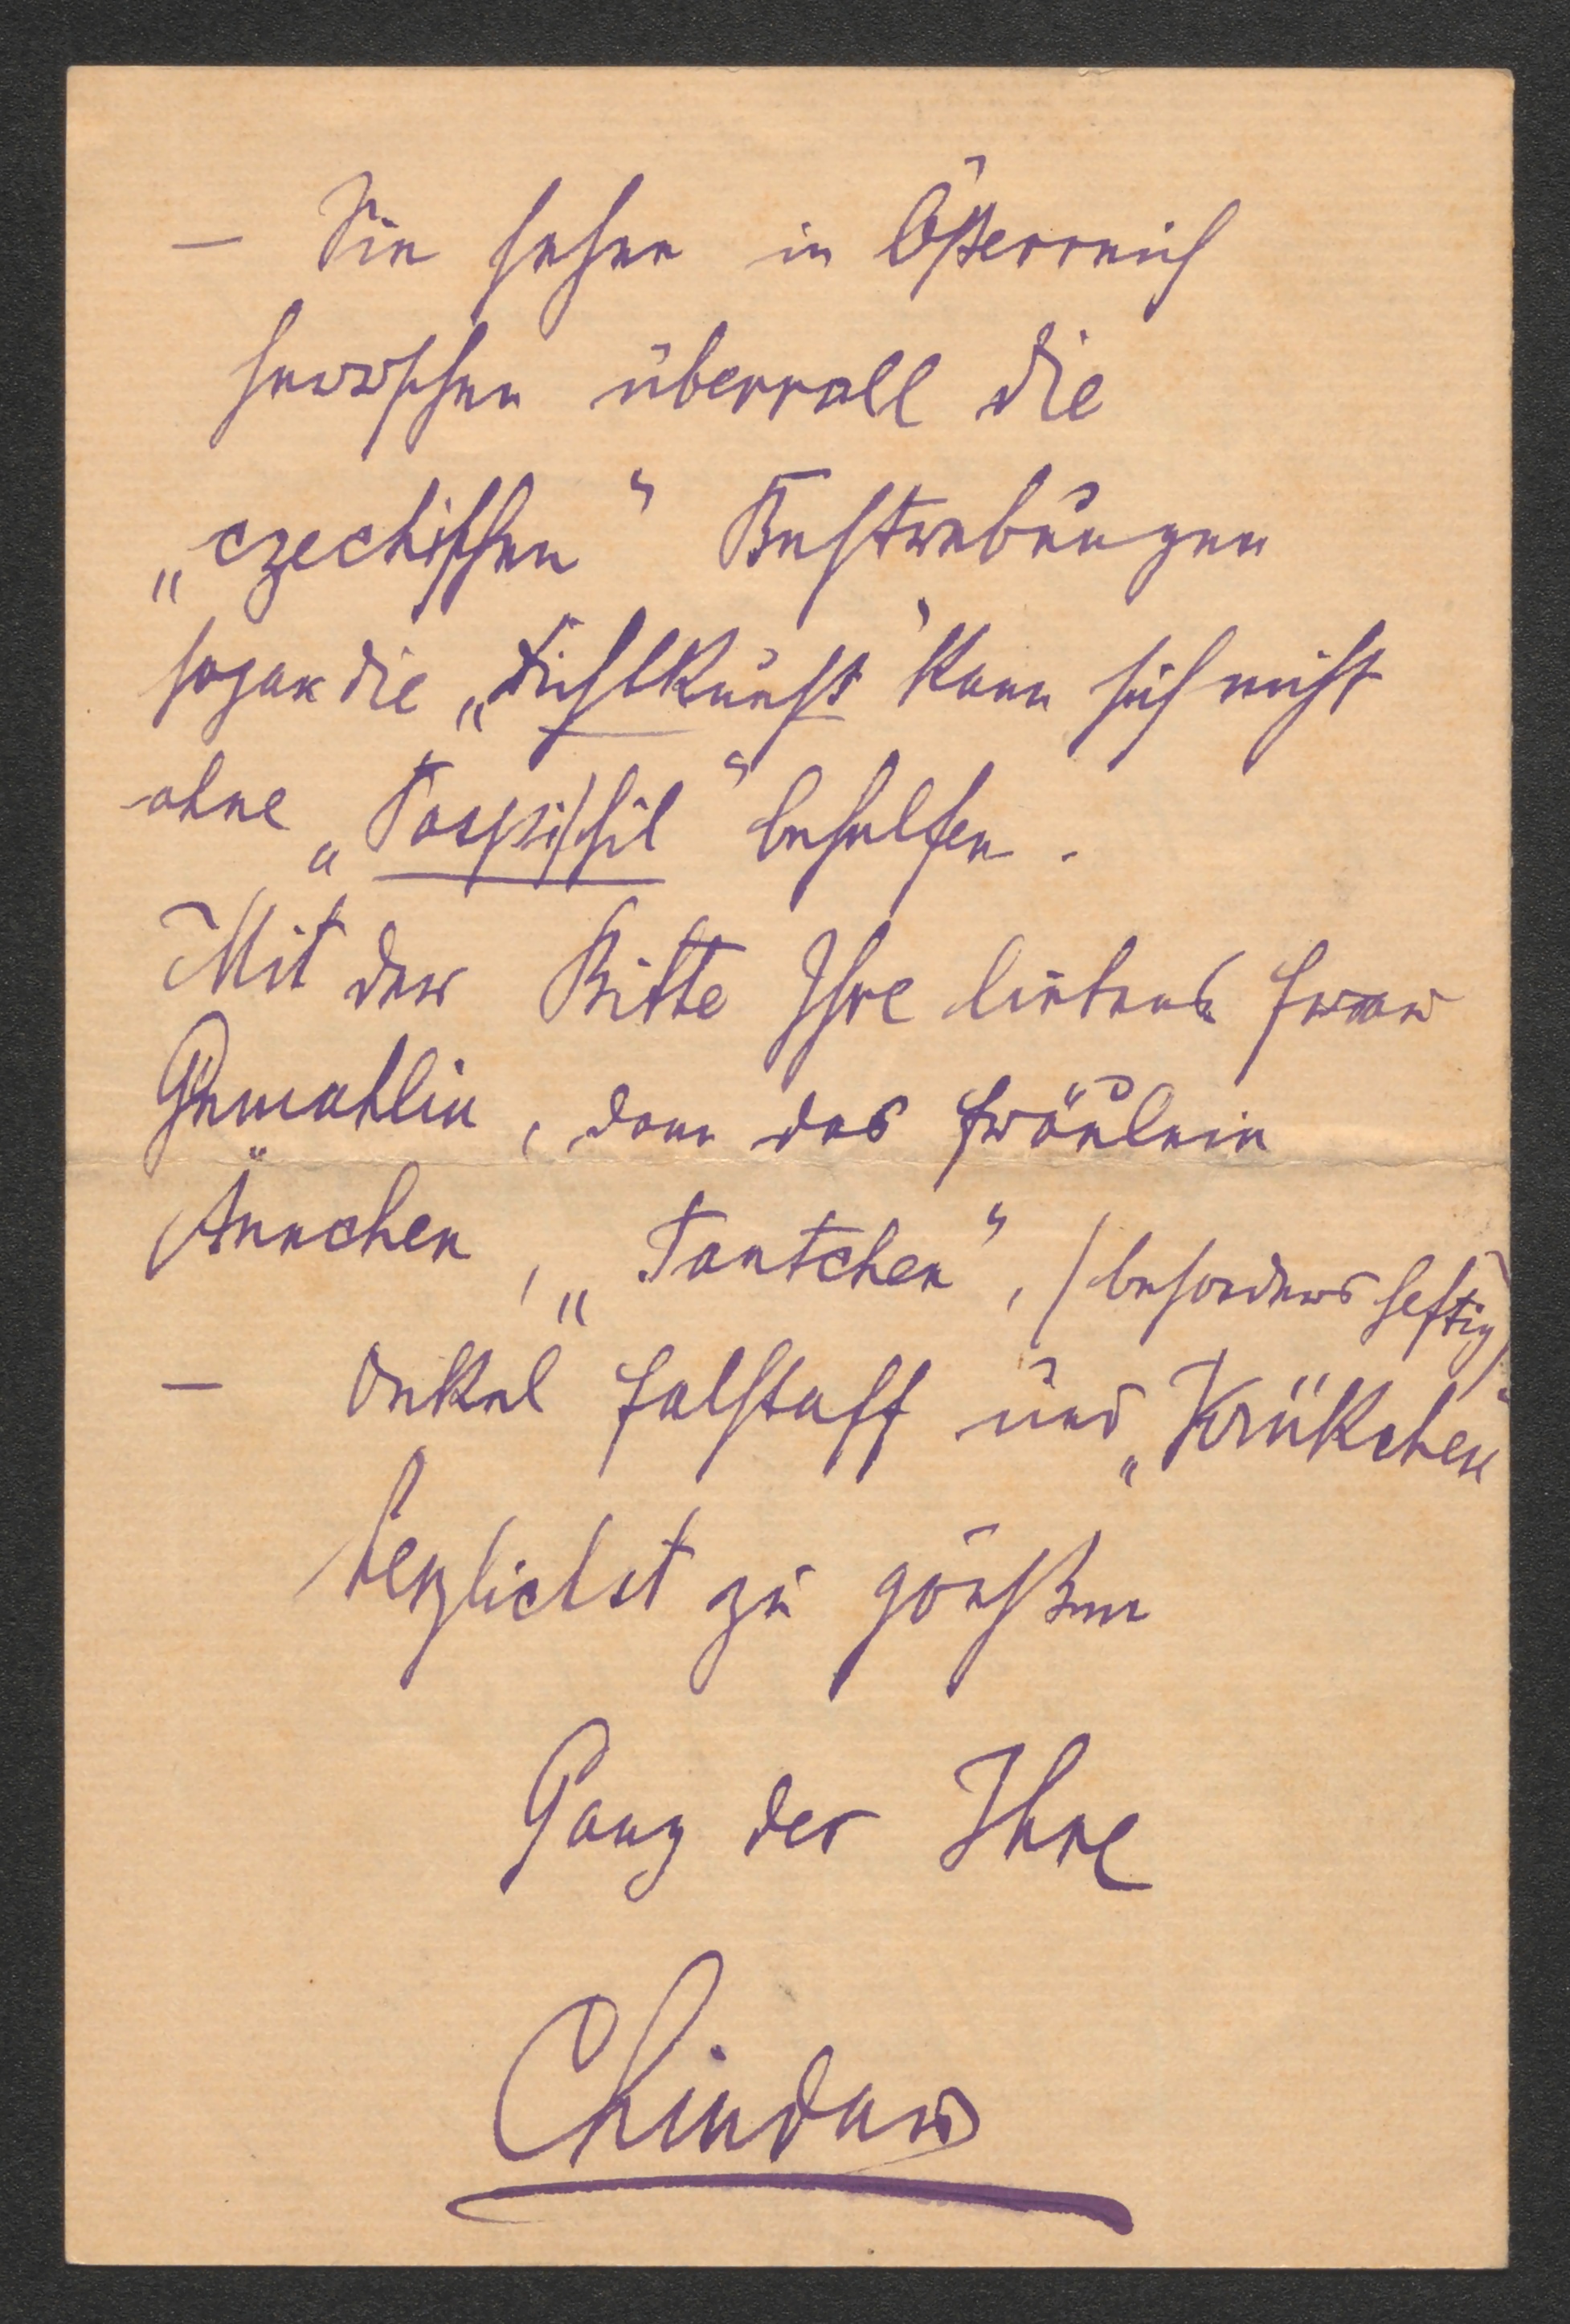 — Sie sehen in Österreich
herrschen überrall die
„czechischen“ Bestrebungen
sogar die „Fichtkunst“ kann sich nicht
ohne „Pospischil“ behelfen.
Mit der Bitte Ihre liebens Frau
Gemahlin, dann das Fräulein
Ännchen, „Tantchen“, (besonders heftig)
— Onkel Falstaff und „Krükchen“
herzlichst zu grüßen
Ganz der Ihre